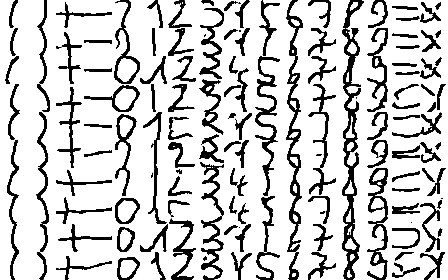 ( ) + - 0 1 2 3 4 5 6 7 8 9 = ×
( ) + - 2 1 2 3 4 5 6 7 8 9 = ×
( ) + - 0 1 2 3 4 5 6 7 8 9 = ×
( ) + - 0 1 2 3 4 5 6 7 8 9 = ×
( ) + - 0 1 2 3 4 5 6 7 8 9 = ×
( ) + - 1 2 3 4 5 6 7 8 9 = ×
( ) + - 1 2 3 4 5 6 7 8 9 = ×
( ) + - 0 1 2 3 4 5 6 7 8 9 = ×
( ) + - 0 1 2 3 4 5 6 7 8 9 = ×
( ) + - 0 1 2 3 4 5 6 7 8 9 = ×